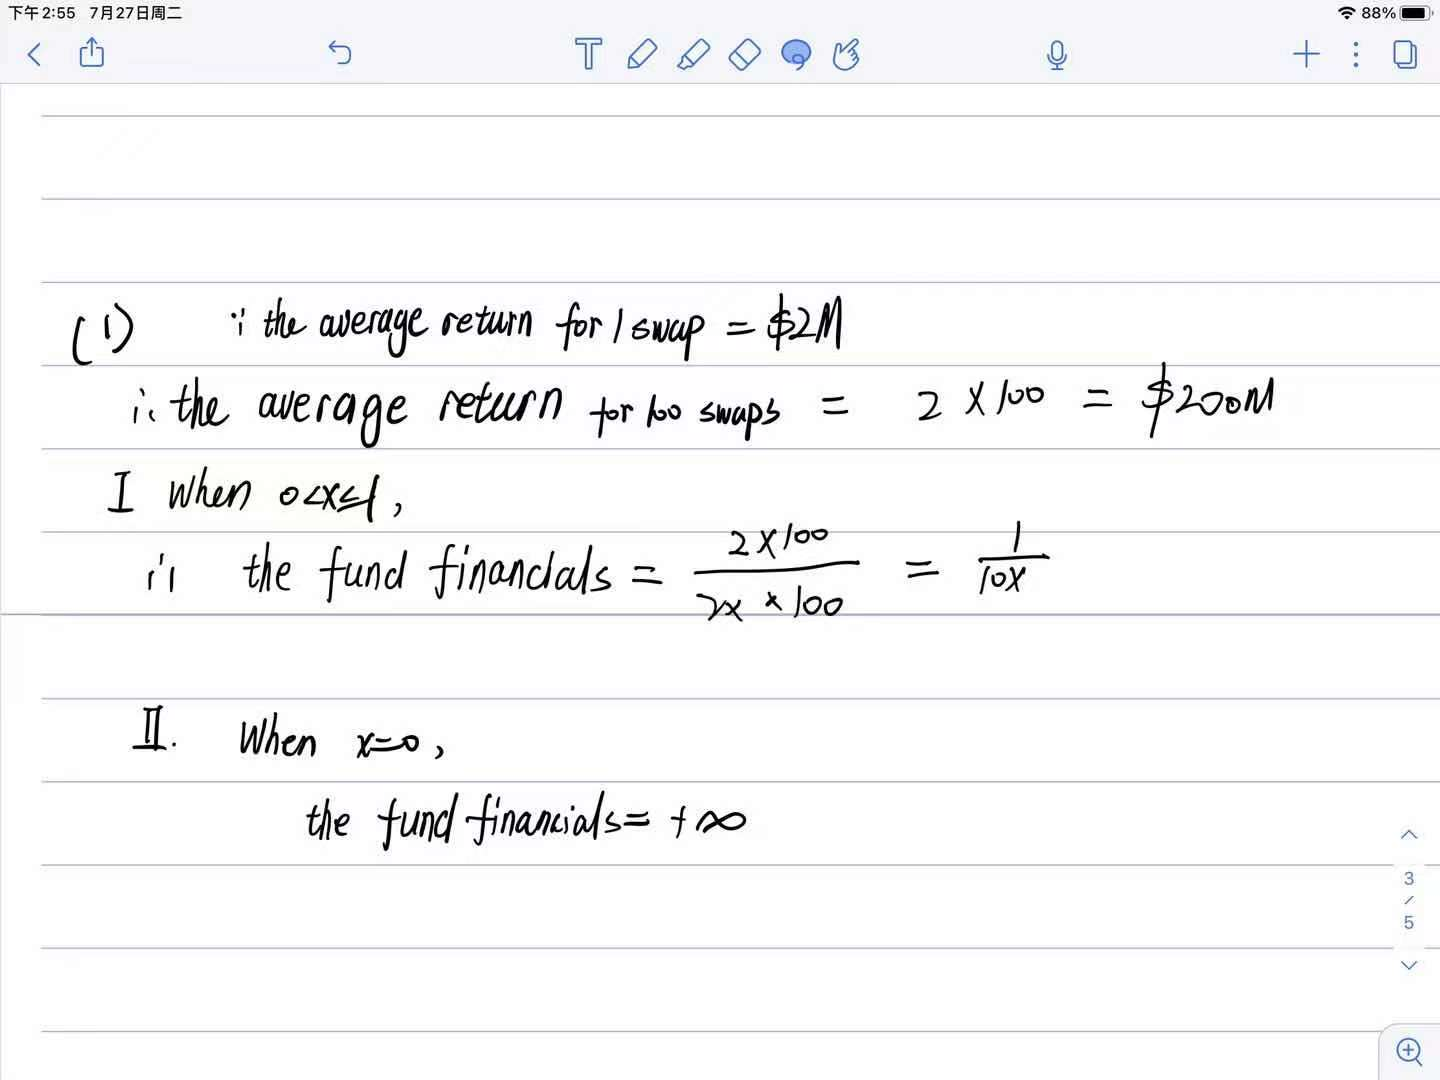 下午2:55 7月27日周二 88%
T
(1) ∵ the average return for 1 swap = $2M
∴ the average return for 100 swaps = 2 × 100 = $200M
I When 0<x≤1,
∴ the fund financials = 2×100 / 2x × 100 = 1 / 10x
II. When x=0,
the fund financials = +∞
3
/
5